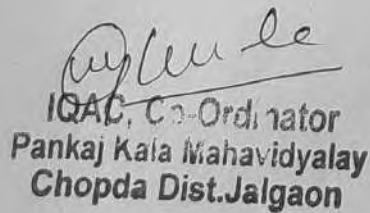 IQAC, Co-Ordinator
Pankaj Kala Mahavidyalay
Chopda Dist.Jalgaon